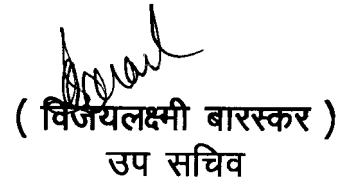 ( विजयलक्ष्मी बारस्कर )
उप सचिव